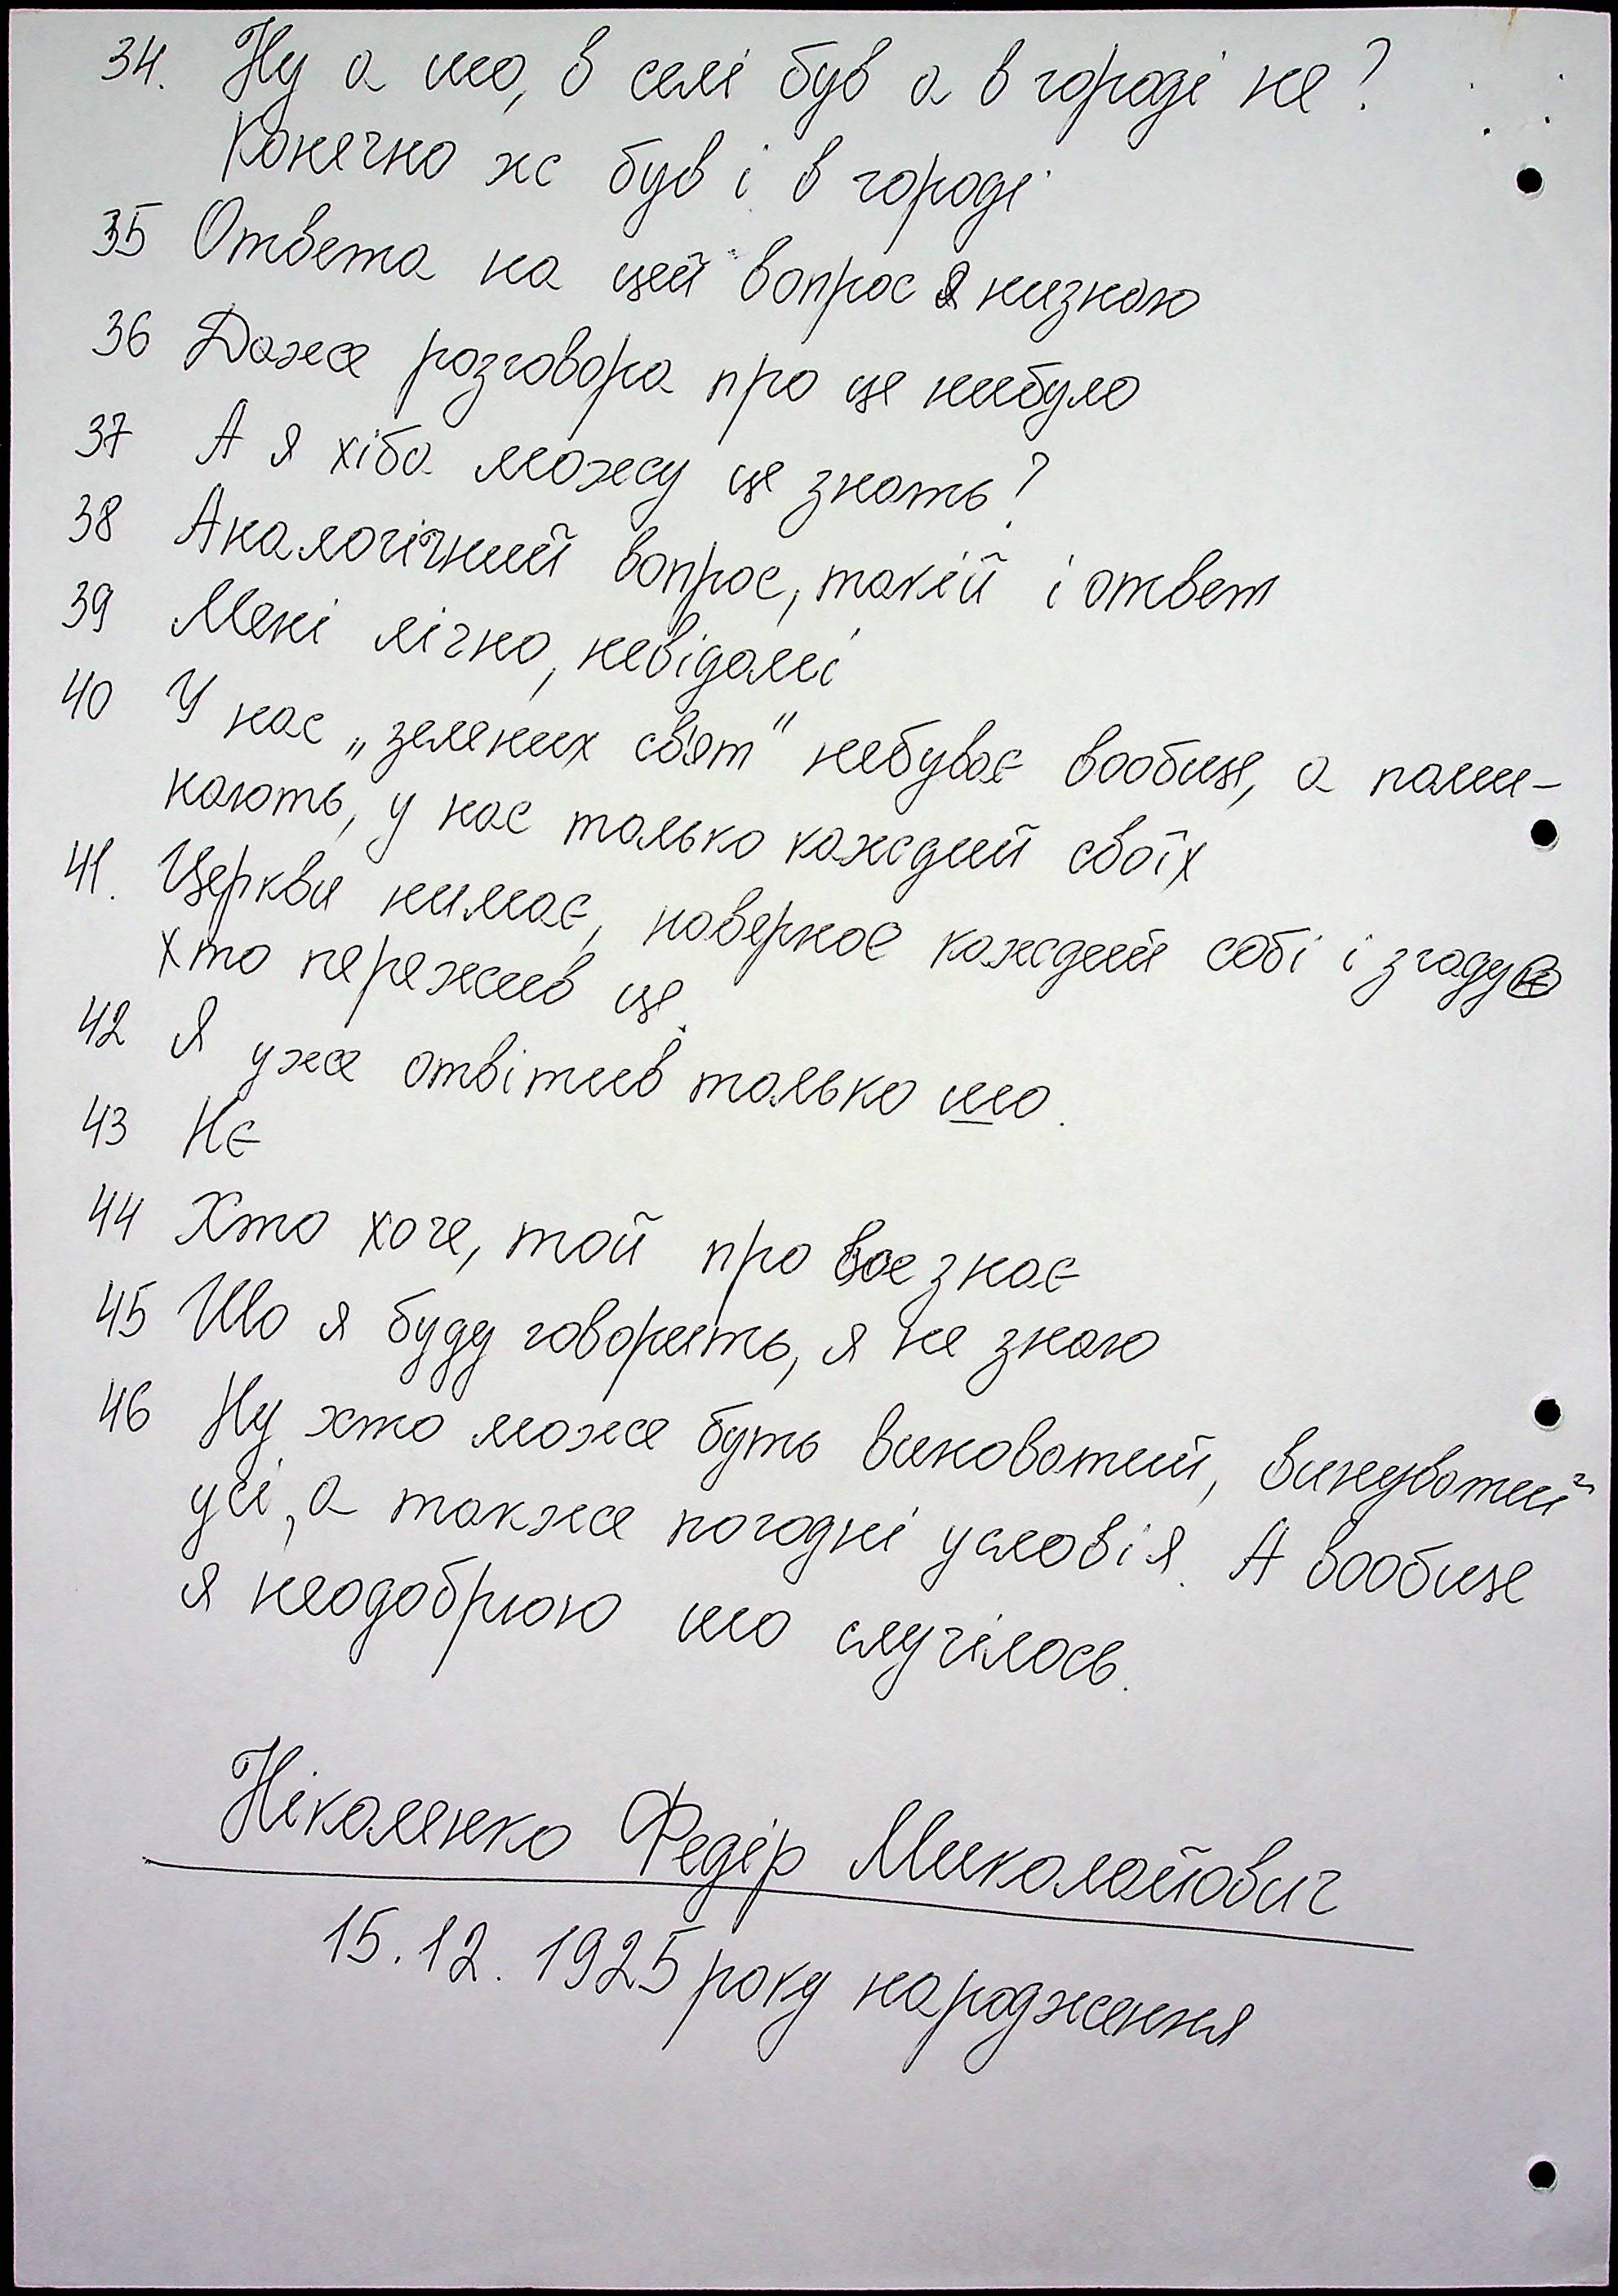 34. Ну а шо, в селі був а в городі не?
Конечно жс був і в городі
35 Ответа на цей вопрос я низнаю
36 Даже розговора про це нибуло
37 А я хіба можу це знать?
38 Аналогічний вопрос, такій і ответ
39 Мені лічно, невідомі
40 У нас „зелених свят" небуває вообще, а поми-
нають, у нас только каждий своїх
41. Церкви нимає, наверное каждий собі і згадує
хто пережив це.
42 Я уже отвітив только шо.
43 Нє
44 Хто хоче, той про все знає
45 Шо я буду говорить, я не знаю
46 Ну хто може буть виноватий, винуватий
усі, а также погодні условія. А вообще
я неодобрюю шо случілось.
Ніколенко Федір Миколайович
15.12.1925 року народження